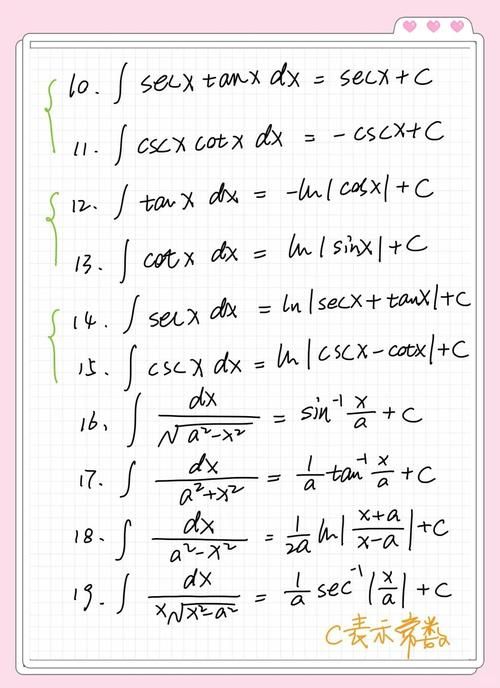 10. ∫ secx tanx dx = secx + C
11. ∫ cscx cotx dx = - cscx + C
12. ∫ tanx dx = -ln|cosx| + C
13. ∫ cotx dx = ln|sinx| + C
14. ∫ secx dx = ln|secx + tanx| + C
15. ∫ cscx dx = ln|cscx - cotx| + C
16. ∫ dx/√(a²-x²) = sin⁻¹ x/a + C
17. ∫ dx/(a²+x²) = 1/a tan⁻¹ x/a + C
18. ∫ dx/(a²-x²) = 1/2a ln|(x+a)/(x-a)| + C
19. ∫ dx/(x√(x²-a²)) = 1/a sec⁻¹|x/a| + C
C表示常数